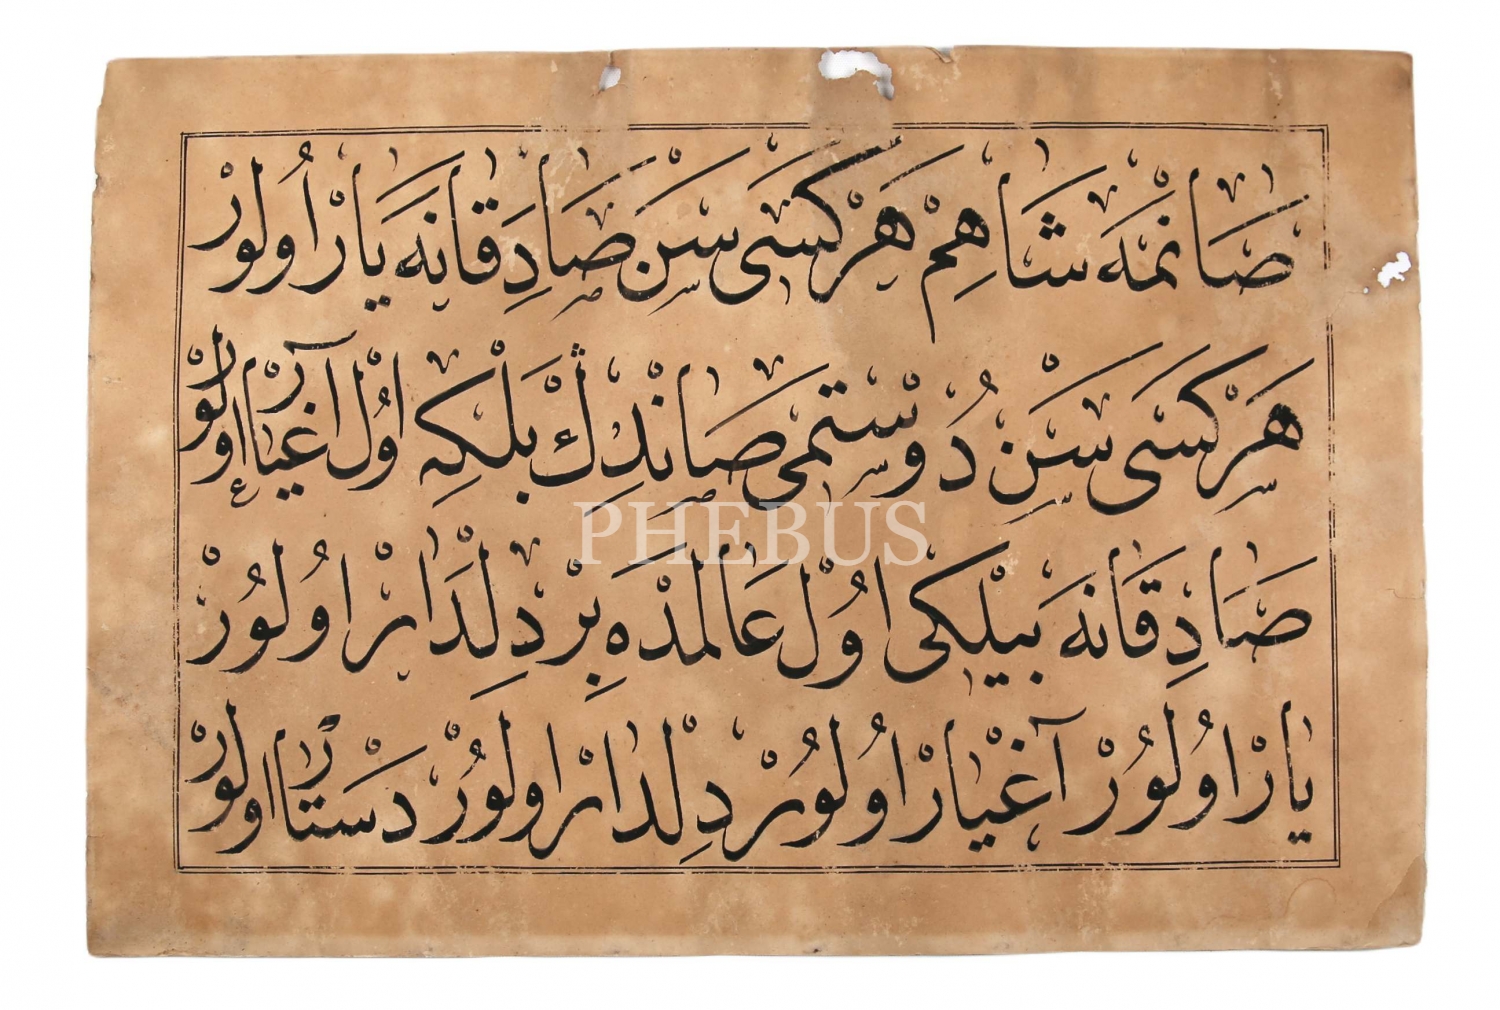 صانمه شاهم هركسى سن صادقانه يار اولور
هركسى سن دوستمى صاندڭ بلكه اول اغيار اولور
صادقانه بيلكى اول عالمده بر دلدار اولور
يار اولور آغيار اولور دلدار اولور دستار اولور
PHEBUS